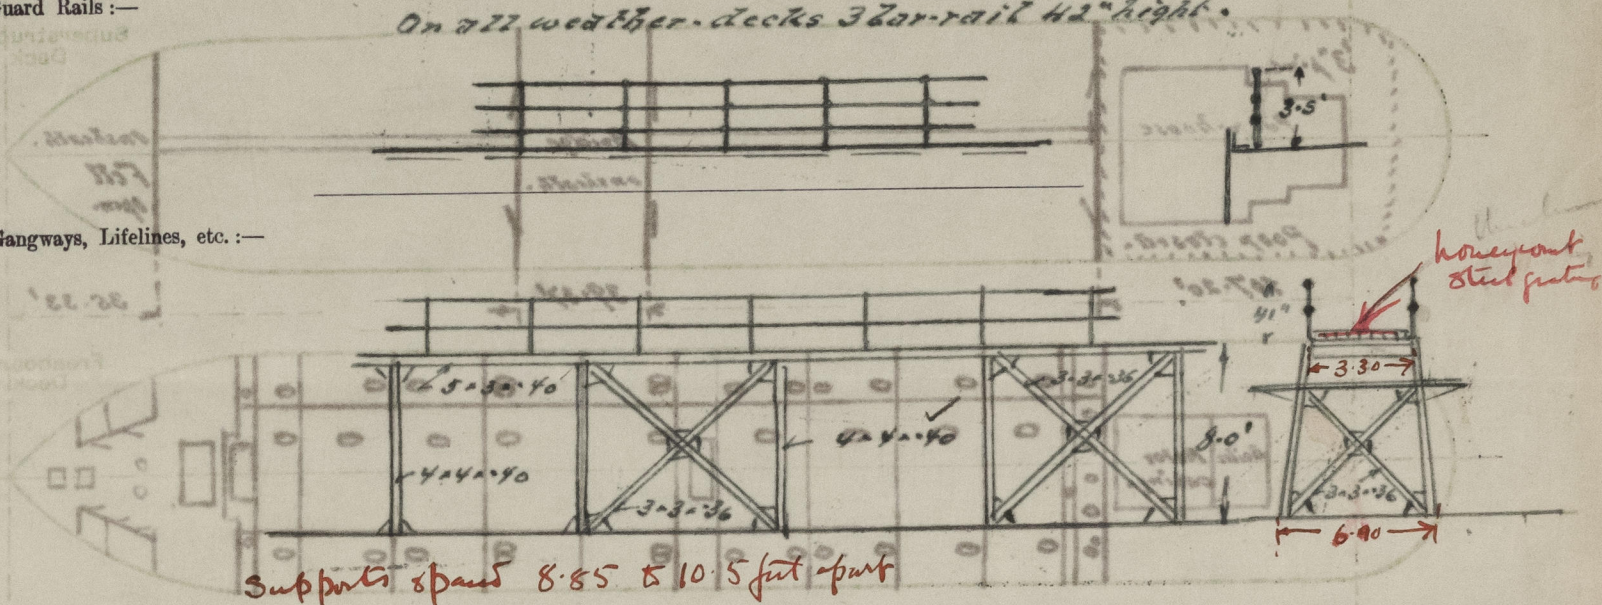 Guard Rails:—
On all weather-decks 3 bar-rail 42" hight.
3.5'
Gangways, Lifelines, etc.:—
honeycomb
steel grating
41"
3.30
5×3×.40
3×3×.36
4×4×.40
8.0'
4×4×.40
3×3×.36
3×3×.36
6.90
Supports spaced 8.85 to 10.5 feet apart